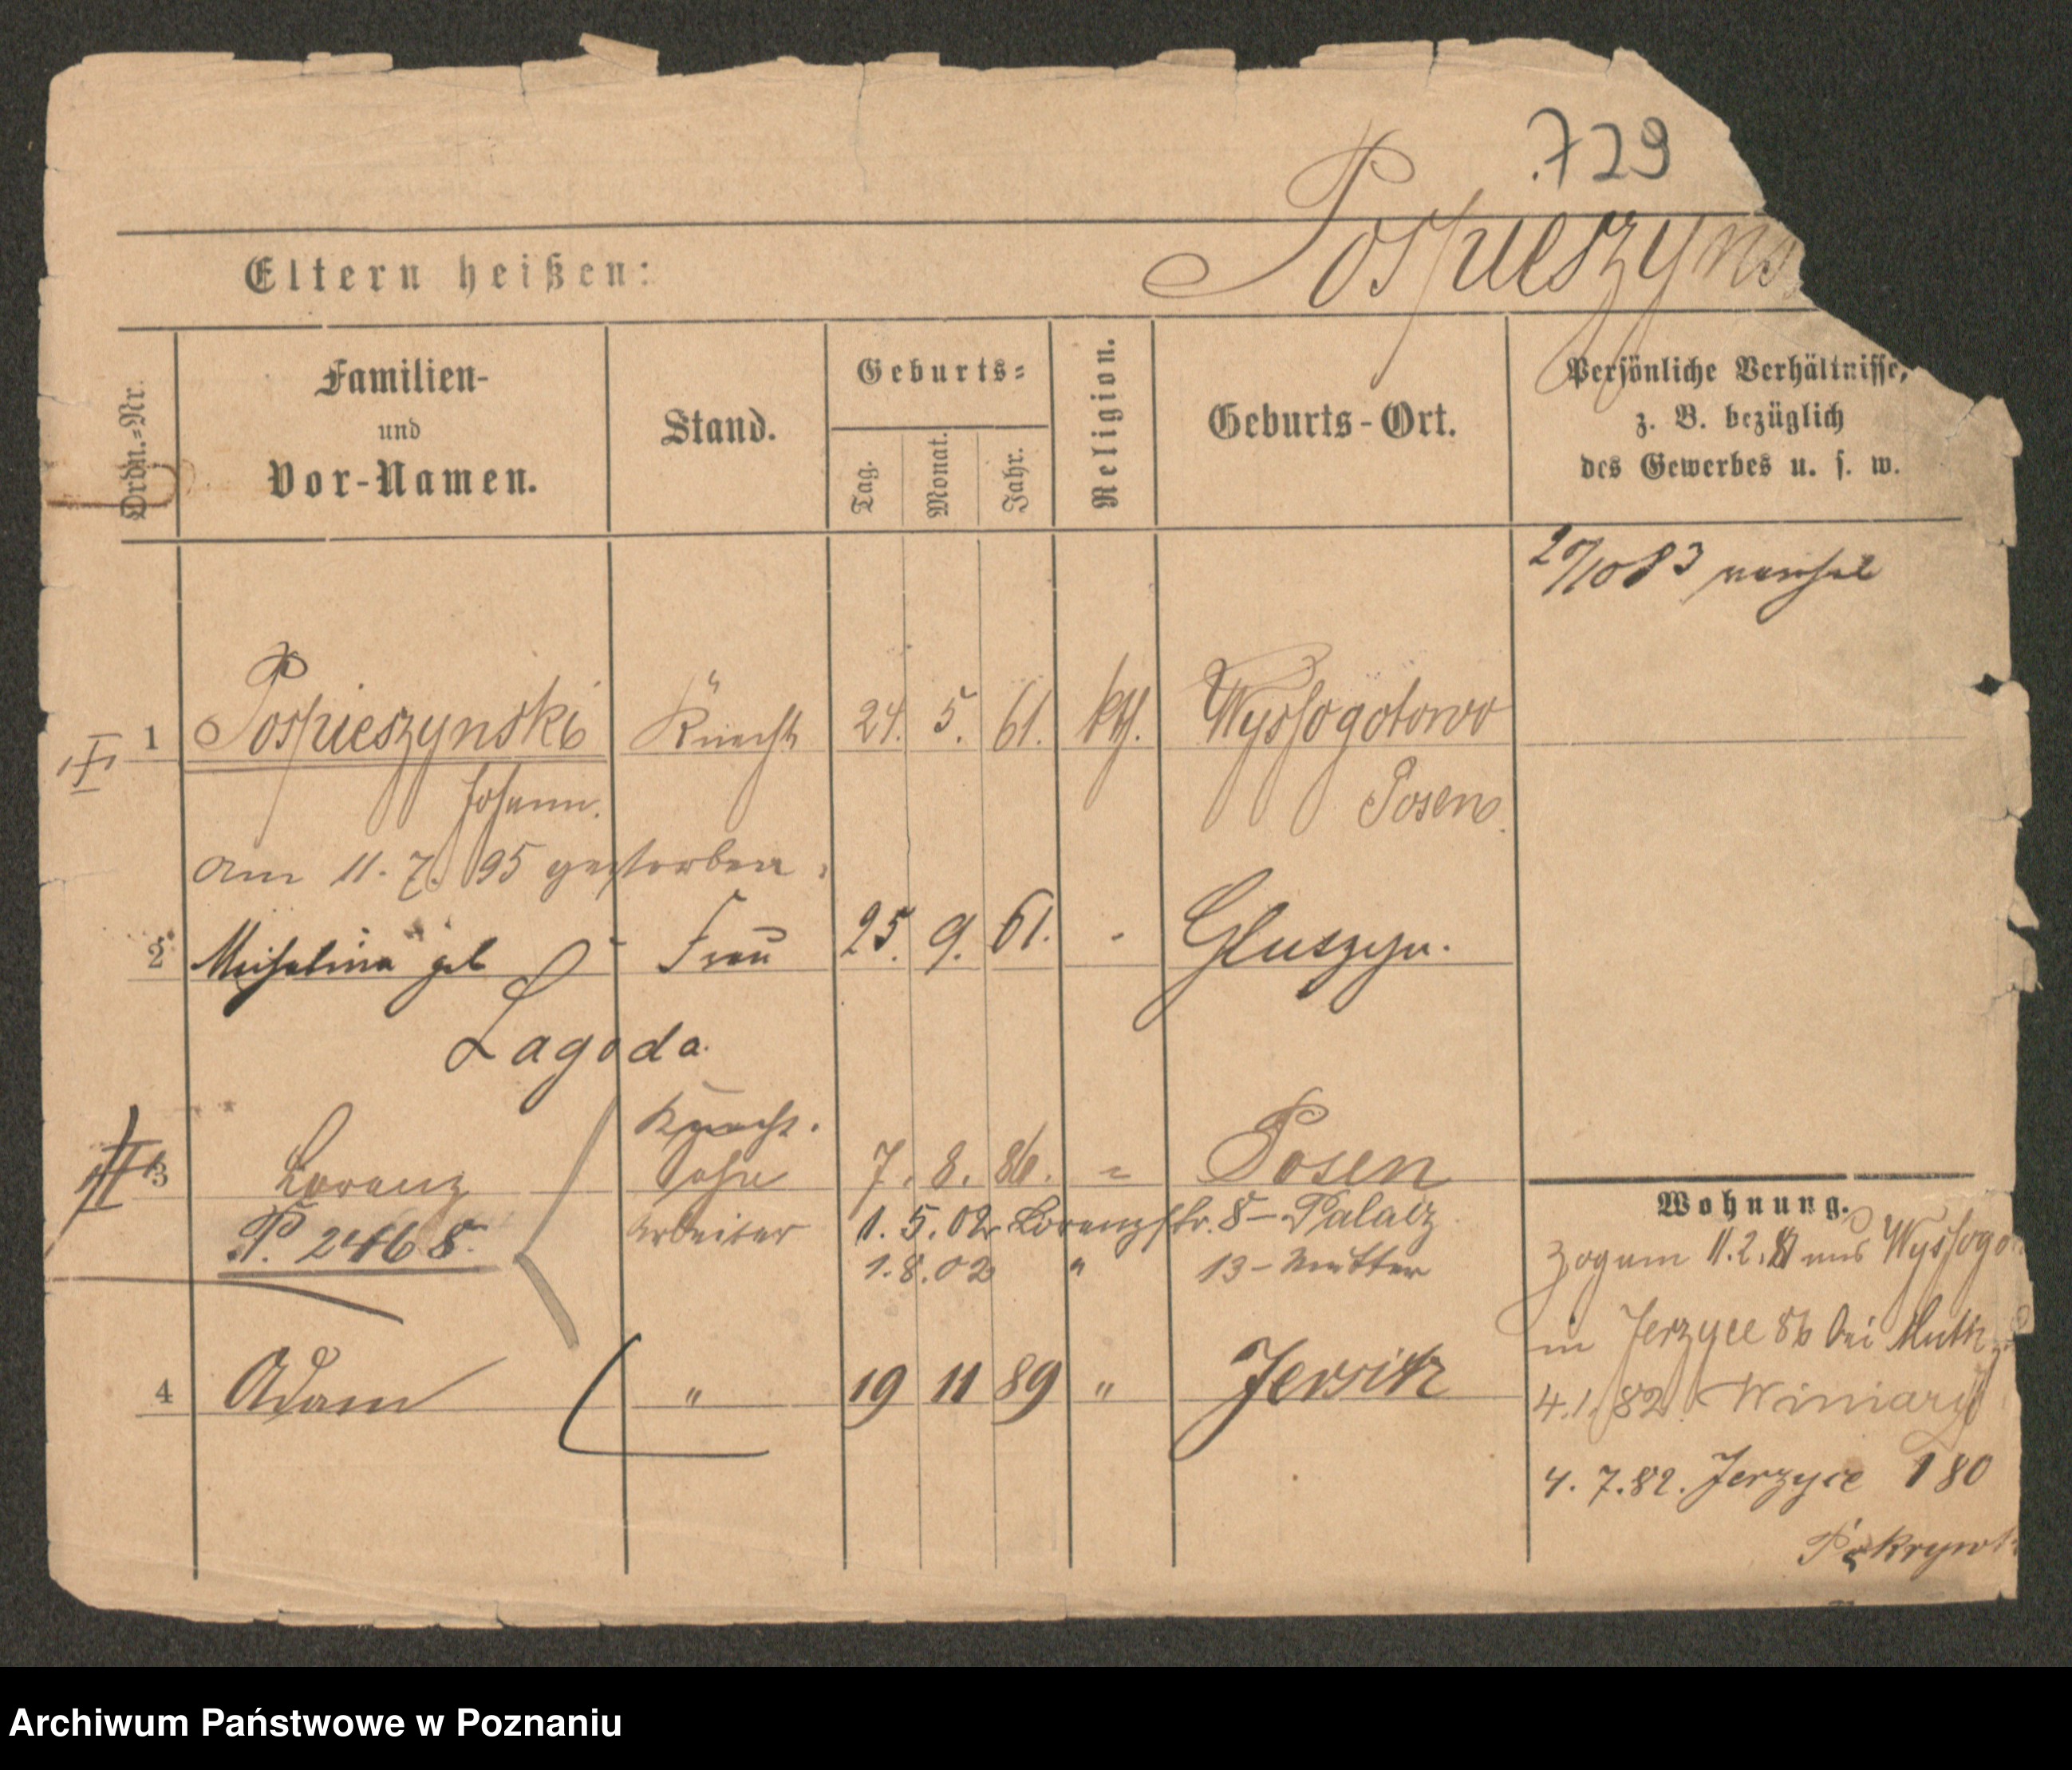 729
Pospieszyns
Eltern heißen:
Ordn.=Nr.
Familien-
und
Vor-Namen.
Stand.
Geburts=
Tag.
Monat.
Jahr.
Religion.
Geburts-Ort.
Persönliche Verhältnisse,
z. B. bezüglich
des Gewerbes u. s. w.
27/10 83
1 Pospieszynski Knecht 24. 5. 61. kth. Wyssogotowo
Johann. Posen.
am 11. 7. 95 gestorben.
2 Michalina geb Frau 25. 9. 61. Gluszyn.
Lagoda.
Knecht.
III 3 Lorenz Sohn 7. 8. 86. " Posen
P. 2468. Arbeiter 1. 5. 02 Lorenzstr. 8 – Palacz
1. 8. 02 " 13 – Mutter
4 Adam " 19 11 89 " Jersitz
Wohnung.
Zog am 11. 2. 81 aus Wyssogo
in Jerzyce 86 bei Muth
4. 1. 82. Winiary
4. 7. 82. Jerzyce 180
Archiwum Państwowe w Poznaniu